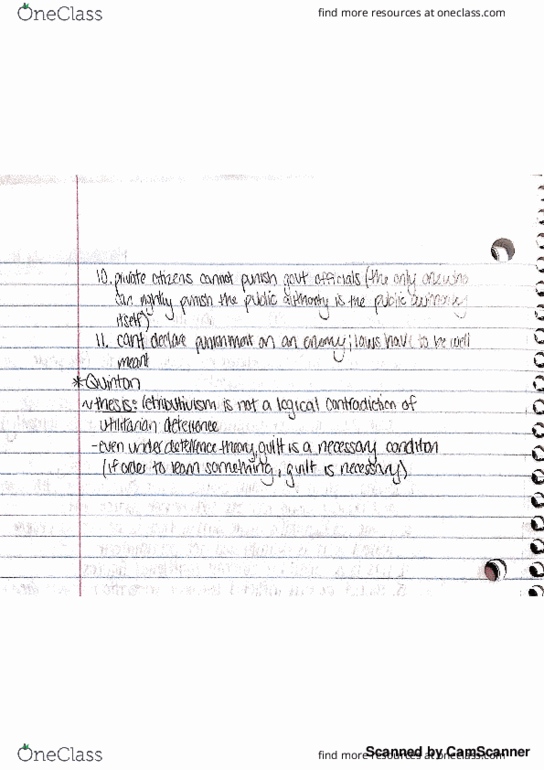 OneClass
find more resources at oneclass.com
10. private citizens cannot punish govt officials (the only one who
can rightly punish the public authority is the public authority
itself)
11. can't declare punishment on an enemy; laws have to be well
meant
*Quinton
~thesis: retributivism is not a logical contradiction of
utilitarian deterrence
-even under deterrence theory, guilt is a necessary condition
(if order to learn something, guilt is necessary)
OneClass
find more resources at oneclass.com
Scanned by CamScanner